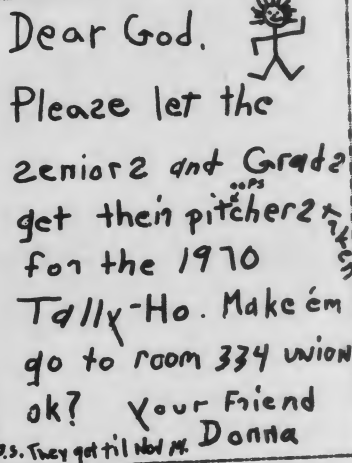 Dear God,
Please let the
2enior2 and Grad2
oops
get their pitcher2 taken
for the 1970
Tally-Ho. Make ém
go to room 334 union
ok? Your Friend
P.S. They got til Nov 14. Donna